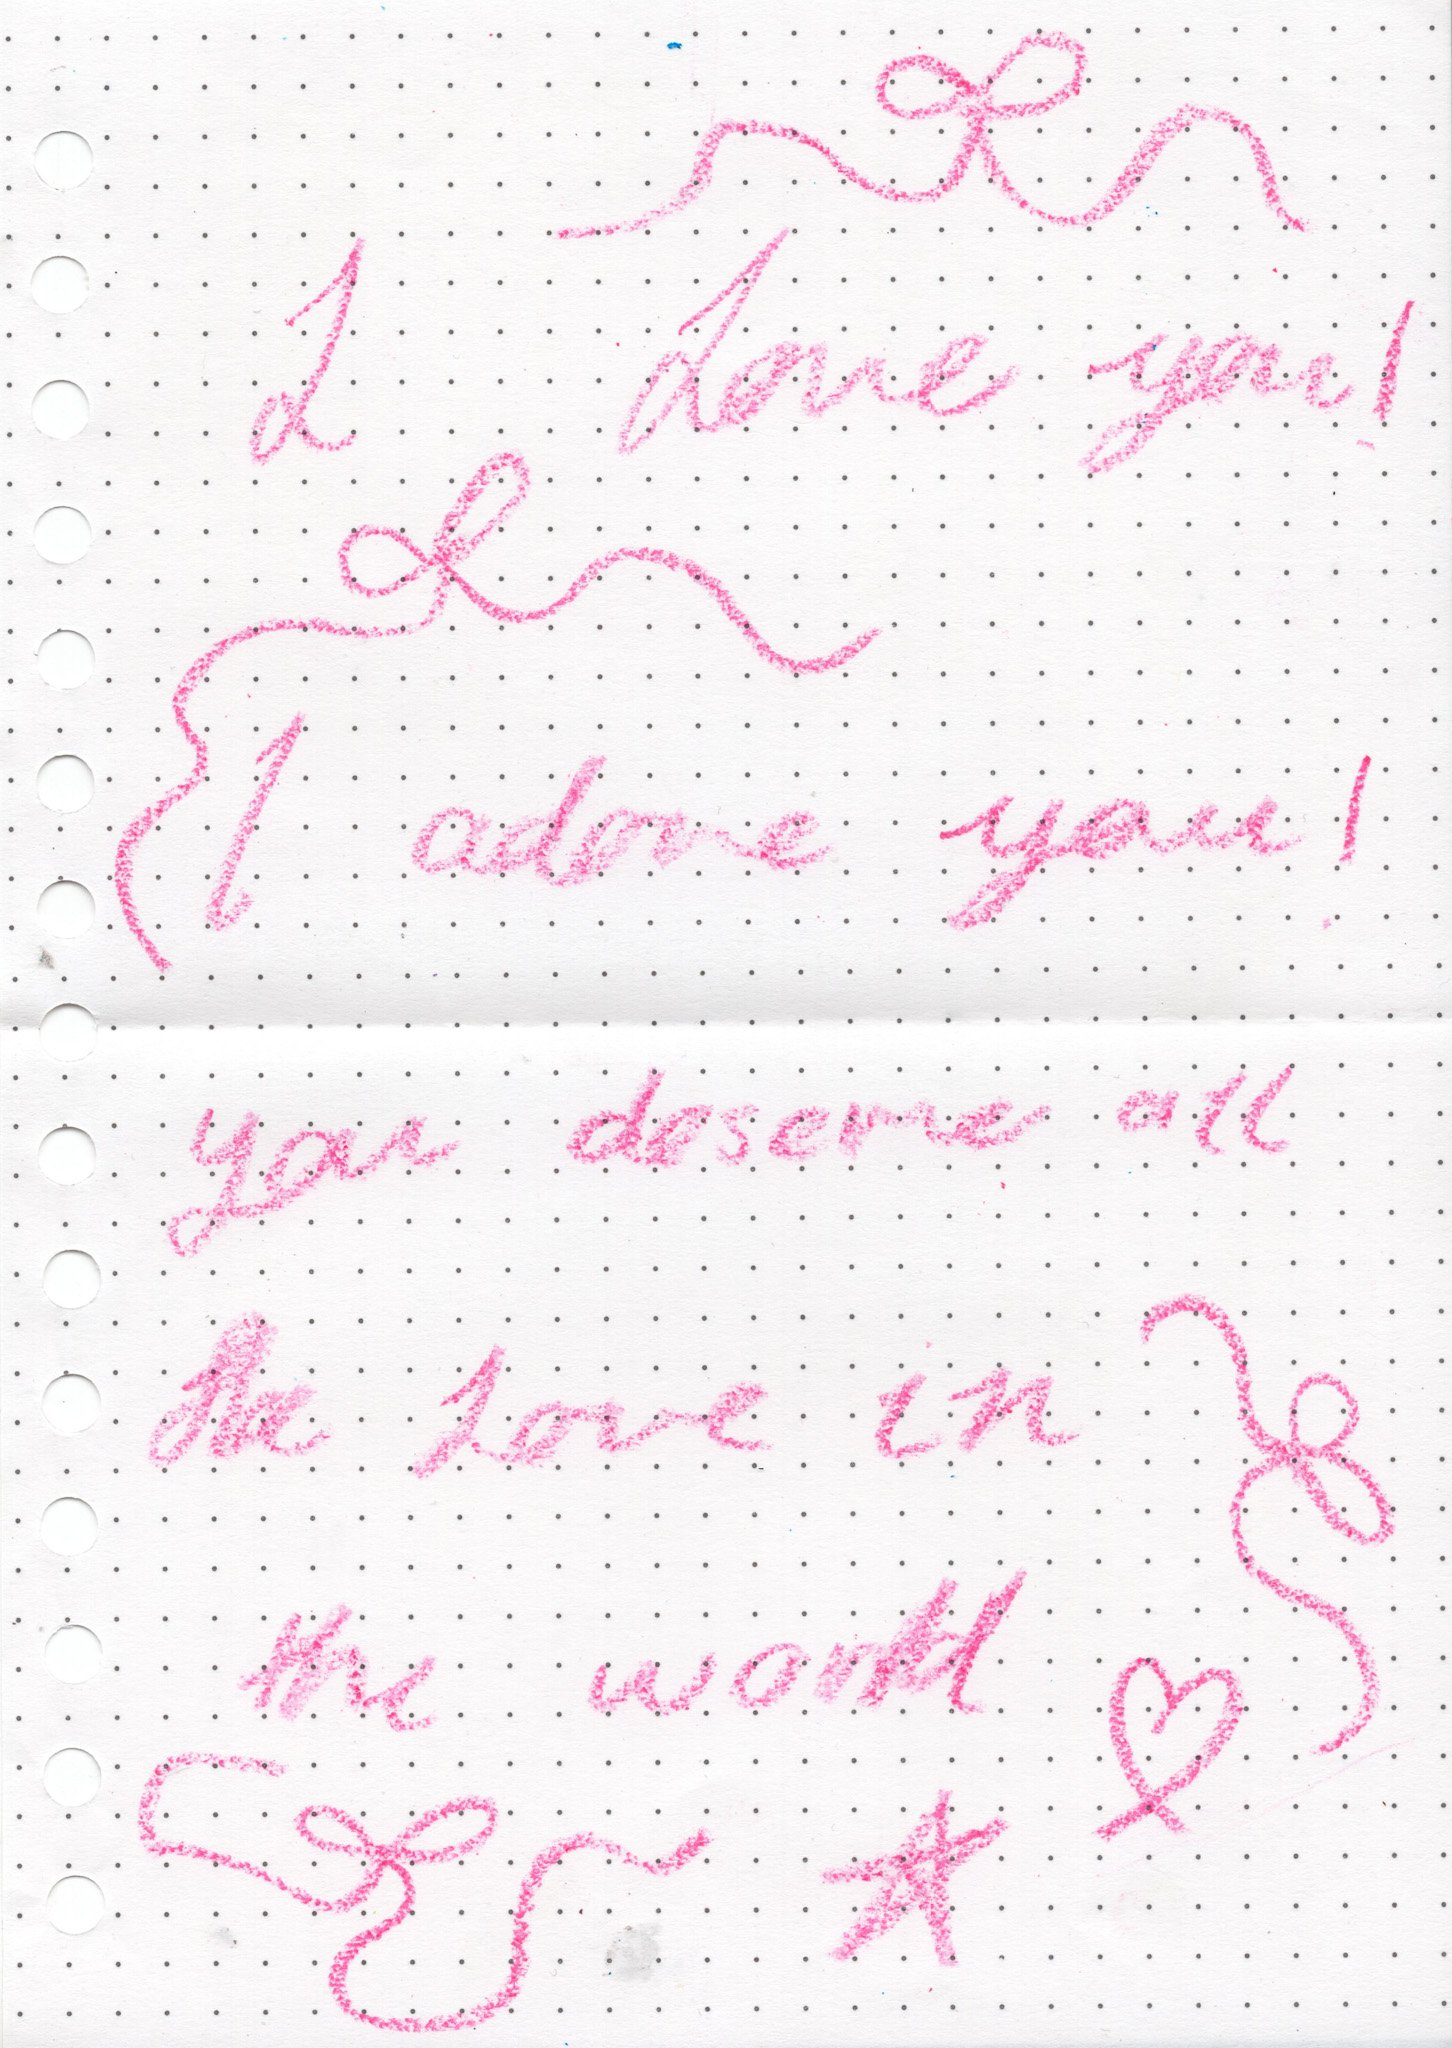 I love you!
I adore you!
you deserve all
the love in
the world